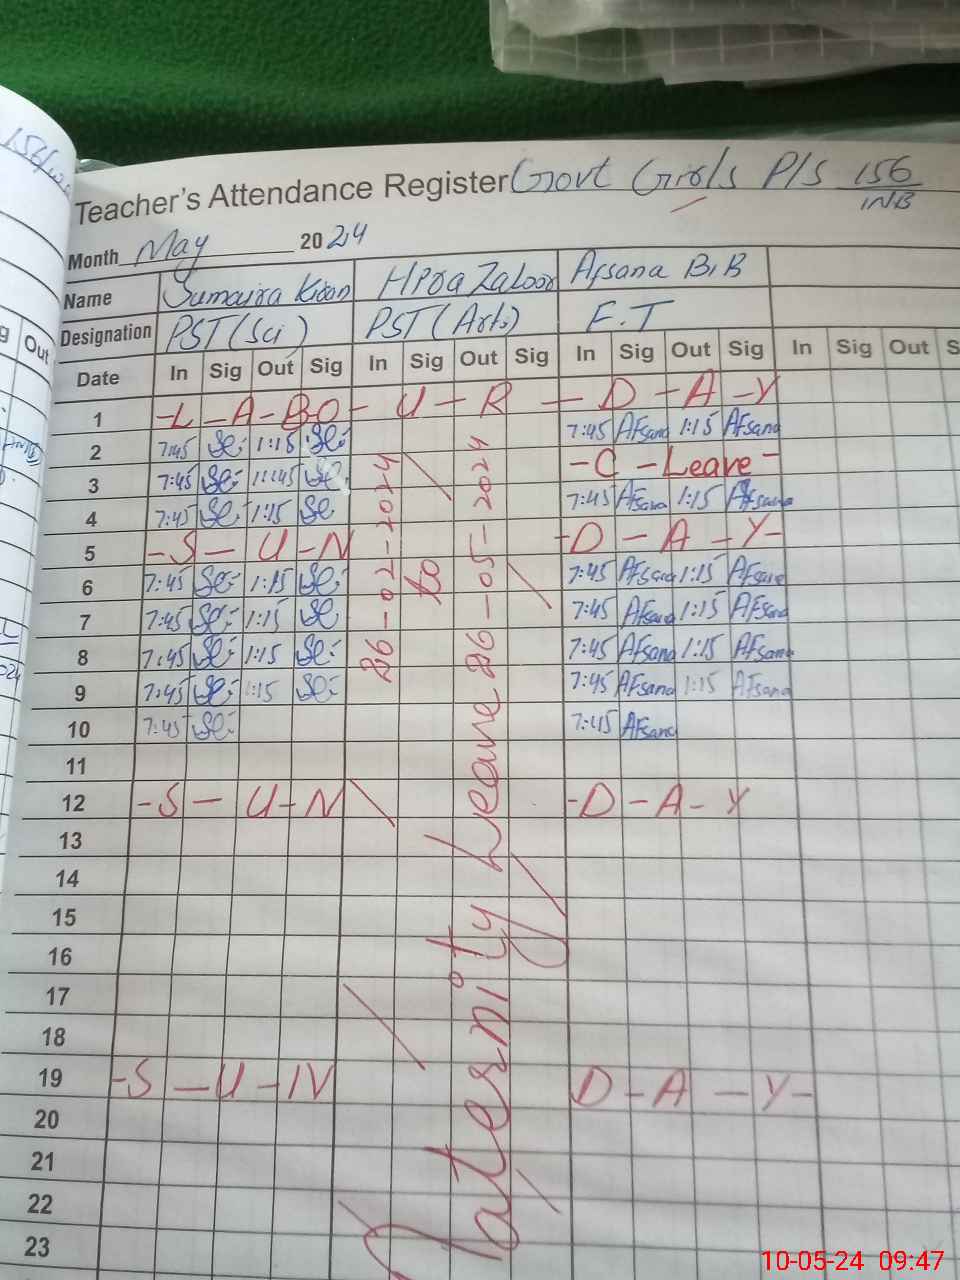 Teacher's Attendance Register Govt Girls P/S 156/INB
Month May 2024
Name Sumaira Kiran Hira Zahoor Afsana BiB
Designation PST (Sci) PST (Arts) E.T
Date In Sig Out Sig In Sig Out Sig In Sig Out Sig In Sig Out S
1 -L-A-BO-U-R-D-A-Y
2 7:45 1:15 7:45 Afsana 1:15 Afsana
3 7:45 -C-Leave-
4 7:45 1:15 7:45 Afsana 1:15 Afsana
5 -S-U-N -D-A-Y-
6 7:45 1:15 7:45 Afsana 1:15 Afsana
7 7:45 1:15 7:45 Afsana 1:15 Afsana
8 7:45 1:15 7:45 Afsana 1:15 Afsana
9 7:45 1:15 7:45 Afsana 1:15 Afsana
10 7:45 7:45 Afsana
11
12 -S-U-N -D-A-Y
13
14
15
16
17
18
19 -S-U-N D-A-Y-
20
21
22
23
26-02-2024
to
26-05-2024
Maternity Leave
g Out
156/
10-05-24 09:47